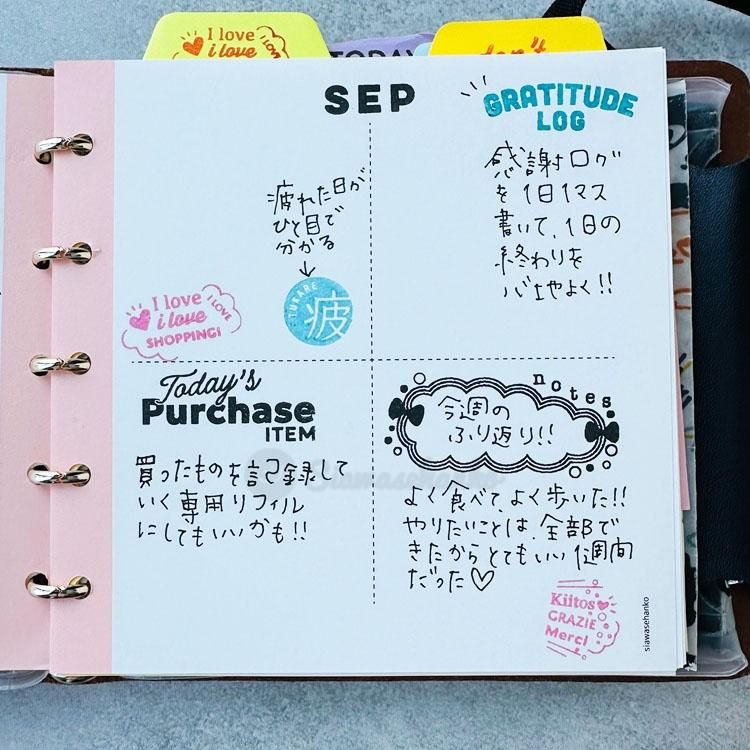 I love
i love
TODAY
don't
SEP
GRATITUDE
LOG
疲れた日が
ひと目で
分かる
TUKARE
疲
I love
i love
I LOVE
SHOPPING!
感謝ログ
を1日1マス
書いて、1日の
終わりを
心地よく!!
Today's
Purchase
ITEM
買ったものを記録して
いく専用リフィル
にしてもいいかも!!
notes
今週の
ふり返り!!
Siawasehanko
よく食べて、よく歩いた!!
やりたいことは、全部で
きたからとてもいい1週間
だった♡
Kiitos
GRAZIE
Merci
siawasehanko